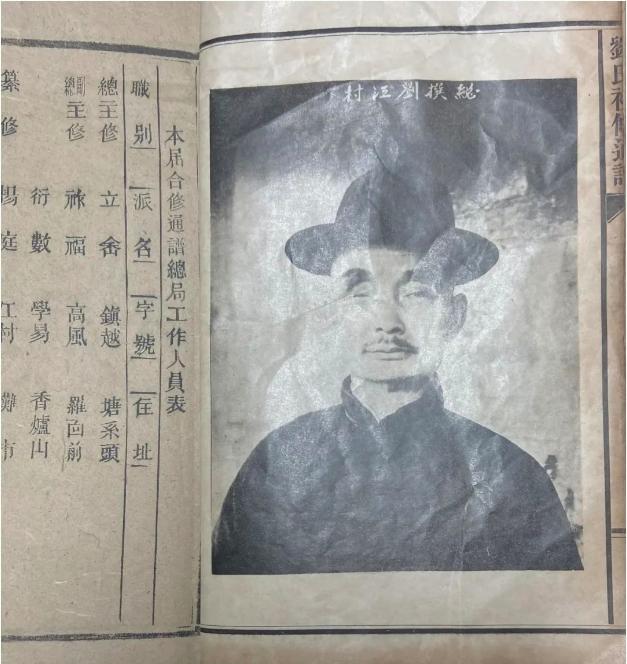 劉氏修通譜
總撰劉江村
本届合修通譜總局工作人員表
職別 派名 字號 住址
總主修 立畬 鎮越 塘系頭
副總主修 福 高風 羅前
衍數 學易 香爐山
纂修 庭 江村 市